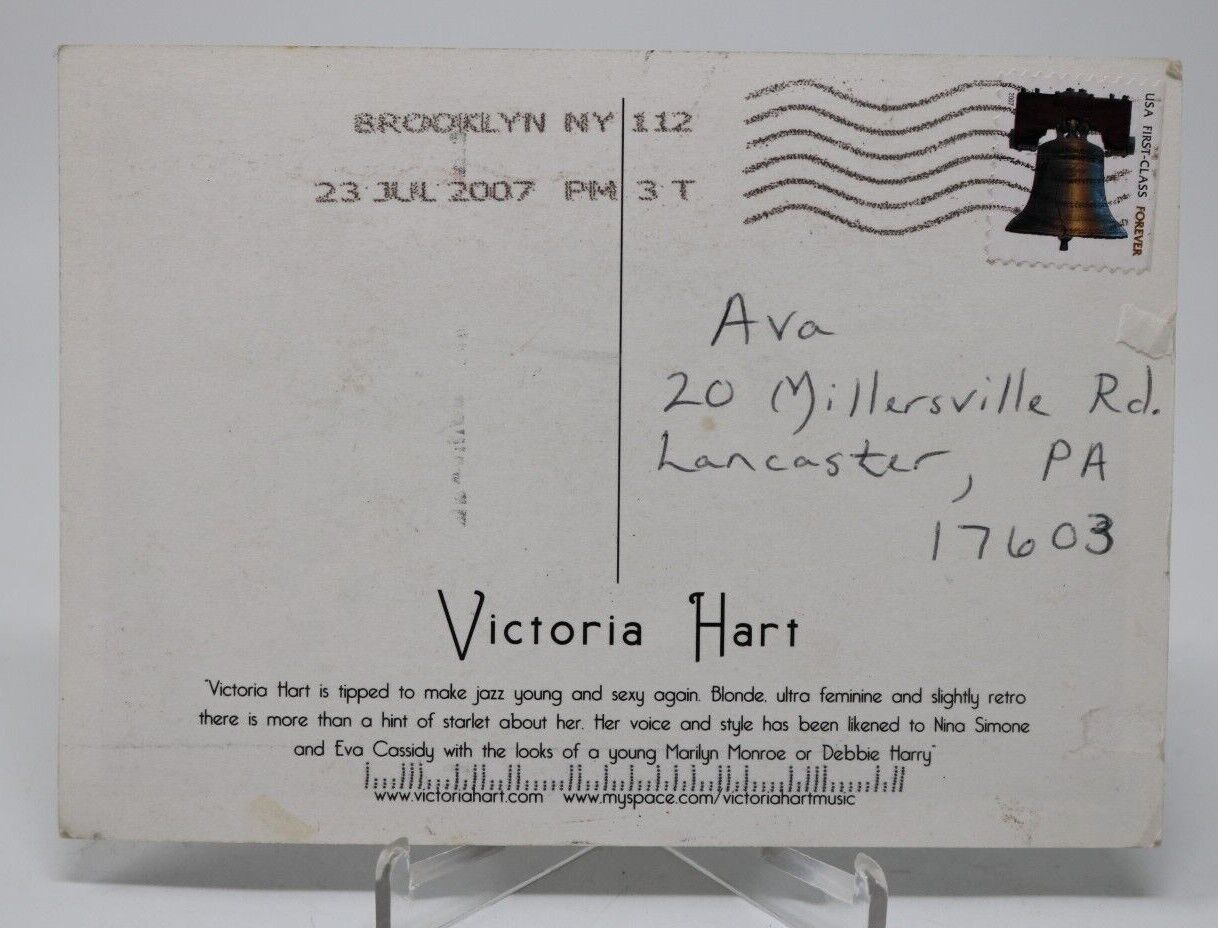 BROOKLYN NY 112
23 JUL 2007 PM 3 T
2007
USA FIRST-CLASS FOREVER
Ava
20 Millersville Rd.
Lancaster, PA
17603
Victoria Hart
"Victoria Hart is tipped to make jazz young and sexy again. Blonde, ultra feminine and slightly retro
there is more than a hint of starlet about her. Her voice and style has been likened to Nina Simone
and Eva Cassidy with the looks of a young Marilyn Monroe or Debbie Harry"
www.victoriahart.com www.myspace.com/victoriahartmusic